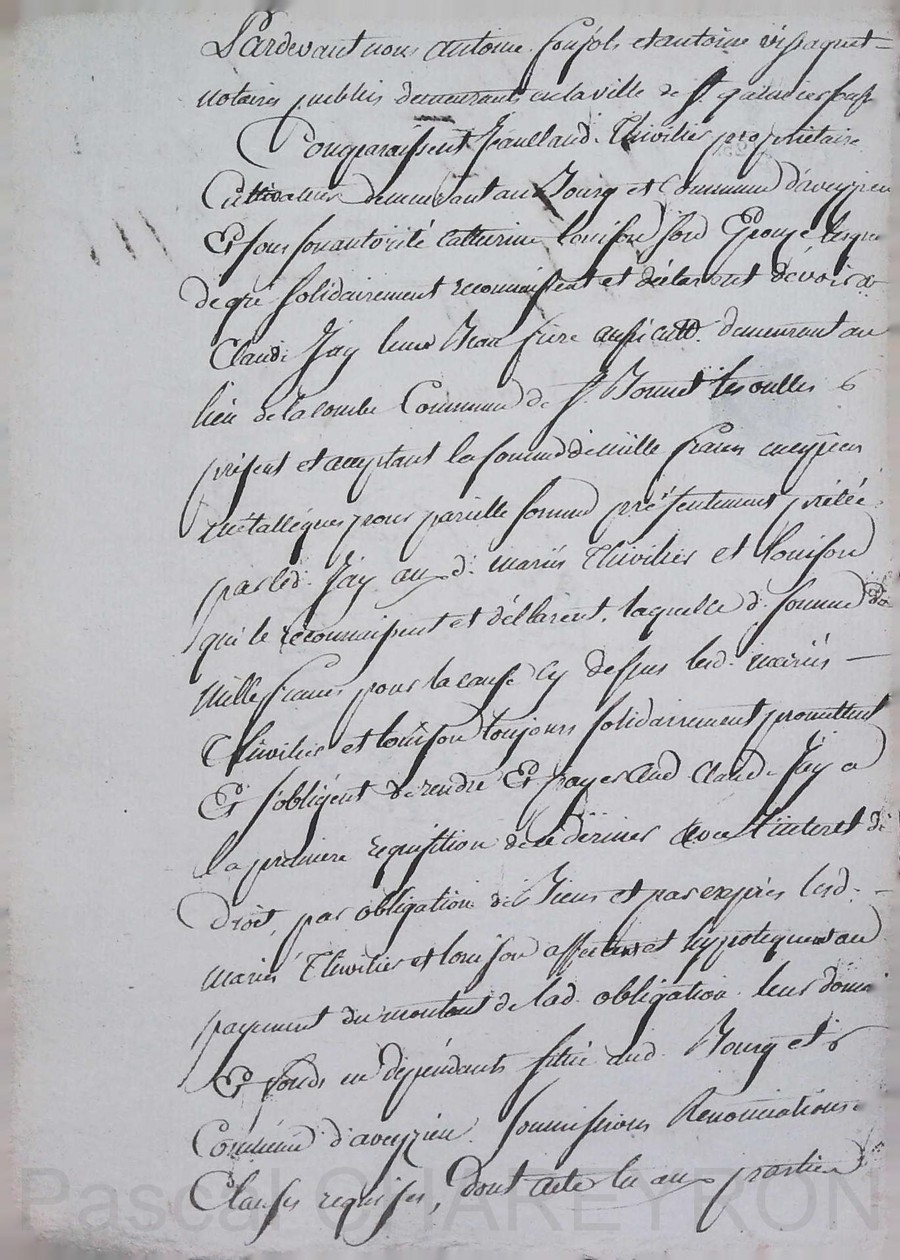 Pardevant nous antoine foujols et antoine vissaguet
notaires publics demeurants en la ville de St galmier
Comparaissent Thivilier propriétaire
Cultivateur demeurant au Bourg et Commune d'aveyzieu
Et sous son autorité Catherine louison son Epouse lesqu
de gré solidairement reconnaissent et déclarent devoir a
Claude Jay leur Beau frère aussi cult. demeurant au
lieu de lacombe Commune de St Bonnet les oulles
présent et acceptant la somme de mille francs en espèces
métalléques pour pareille somme présentement prétée
par led. Jay aux d. mariés Thivilier et louison
qui le reconnaissent et déclarent, laquelle d. somme de
Mille francs pour la cause cy dessus lesd. mariés
Thivilier et louison toujours solidairement promettent
Et s'obligent de rendre Et payer aud Claude Jay a
la première requisition de ce dernier avec l'interet de
droit, par obligation de Biens et par exprès lesd.
mariés Thivilier et louison affectent et hypotequent au
payement du montant de lad. obligation leur domai
Et fonds en dépendants situé aud. Bourg et
Commune d'aveyzieu. soumissions Renonciations
Clauses requises, dont acte lu aux parties
Pascal CHAREYRON